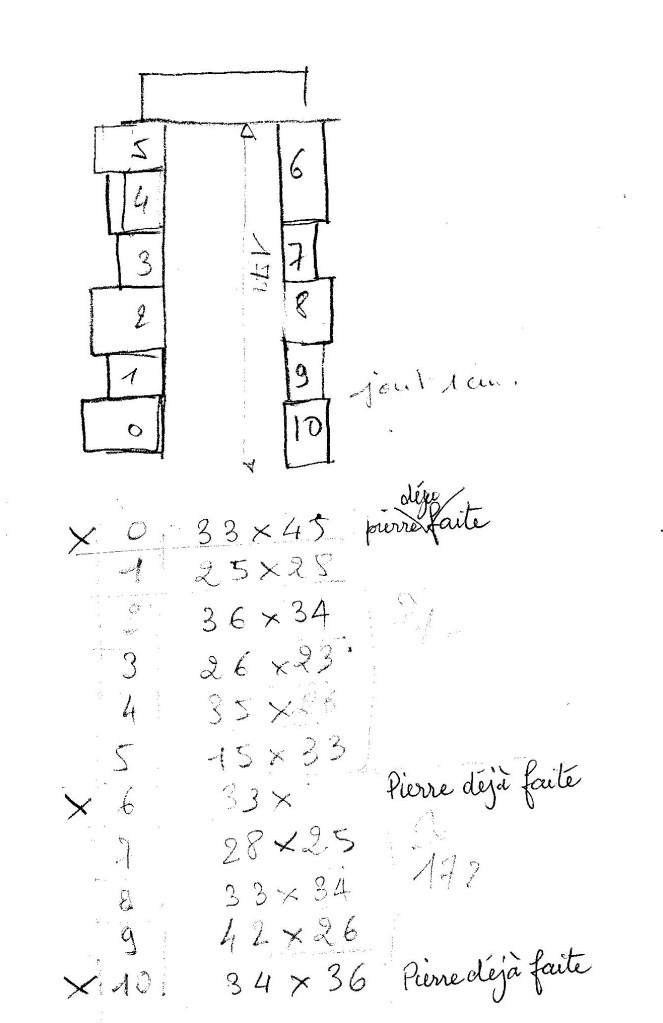 5 6
4
3 7
2 8
1 9
0 10
joint 1 cm.
déjà
x 0 33 x 45 pierre faite
1 25 x 28
2 36 x 34
3 26 x 23
4 35 x
5 15 x 33
x 6 33 x Pierre déjà faite
7 28 x 25
172
8 33 x 34
9 42 x 26
x 10. 34 x 36 Pierre déjà faite